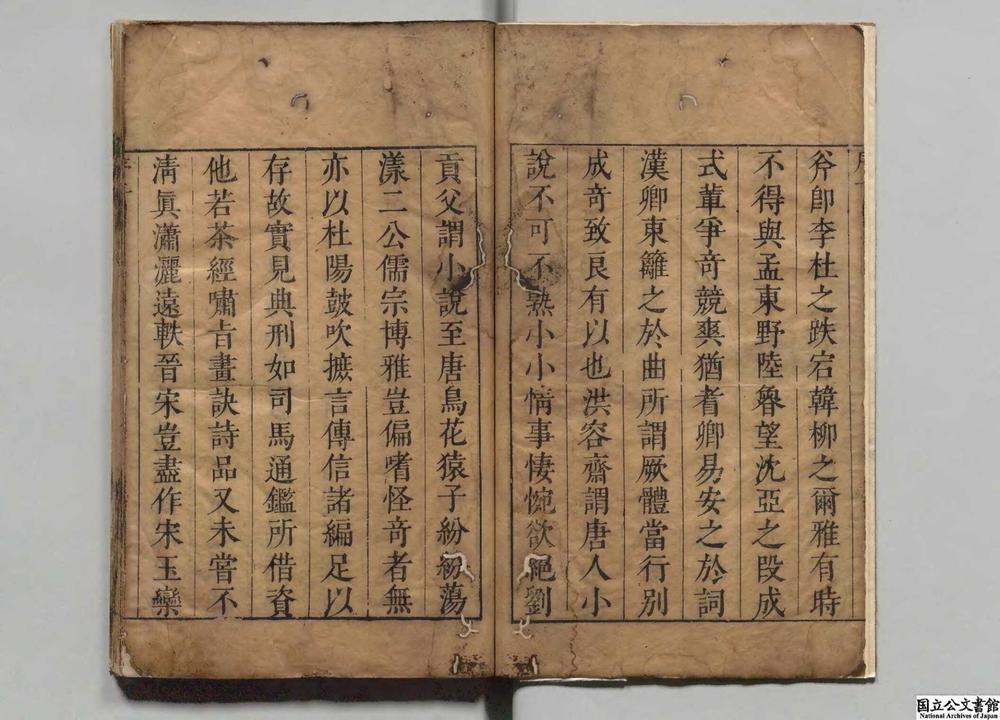 斧卽李杜之跌宕韓柳之爾雅有時
不得與孟東野陸魯望沈亞之段成
式輩爭奇競爽猶耆卿易安之於詞
漢卿東籬之於曲所謂厥體當行別
成奇致良有以也洪容齋謂唐人小
說不可不熟小小情事悽惋欲絕劉
貢父謂小說至唐鳥花猿子紛紛蕩
漾二公儒宗博雅豈偏嗜怪奇者無
亦以杜陽鼓吹摭言傳信諸編足以
存故實見典刑如司馬通鑑所借資
他若茶經嘯旨畫訣詩品又未嘗不
清眞瀟灑遠軼晉宋豈盡作宋玉欒
国立公文書館
National Archives of Japan